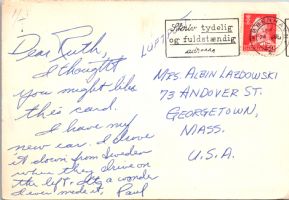 Skriv tydelig
og fuldstændig
adresse
LUFT
Dear Ruth,
I thought
you might like
this card.
I have my
new car. I drove
it down from Sweden
when they drive on
the left. It's a wonder
I ever made it, Paul
MRS. ALBIN LAZDOWSKI
73 ANDOVER ST.
GEORGETOWN,
MASS.
U.S.A.